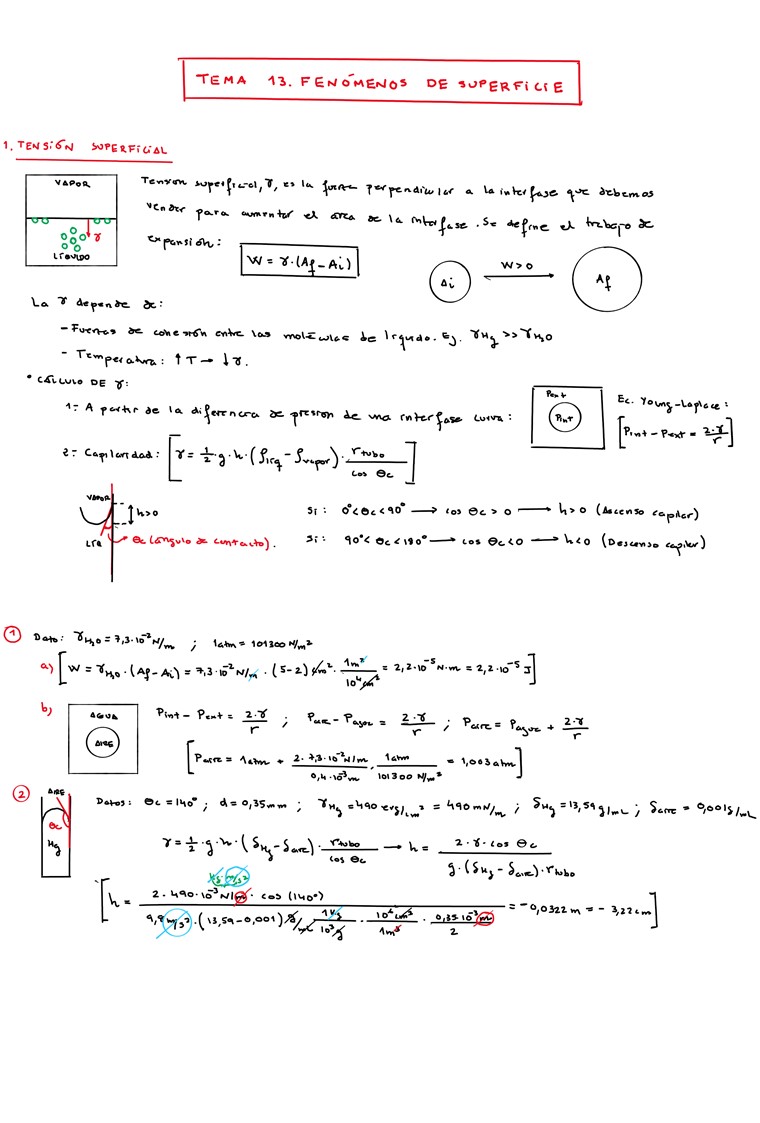 TEMA 13. FENÓMENOS DE SUPERFICIE
1. TENSIÓN SUPERFICIAL
VAPOR
γ
LÍQUIDO
Tensión superficial, γ, es la fuerza perpendicular a la interfase que debemos
vencer para aumentar el área de la interfase. Se define el trabajo de
expansión:
W = γ·(Af - Ai)
Ai
W>0
Af
La γ depende de:
- Fuerzas de cohesión entre las moléculas de líquido. Ej. γHg >> γH2O
- Temperatura: ↑T → ↓γ.
• CÁLCULO DE γ:
1.- A partir de la diferencia de presión de una interfase curva:
Pext
Pint
Ec. Young-Laplace:
[Pint - Pext = 2·γ/r]
2.- Capilaridad: [γ = 1/2 · g · h · (ρliq - ρvapor) · rtubo/cos θc]
VAPOR
h>0
LIQ
θc (ángulo de contacto).
Si: 0° < θc < 90° → cos θc > 0 → h>0 (Ascenso capilar)
Si: 90° < θc < 180° → cos θc < 0 → h<0 (Descenso capilar)
1 Dato: γH2O = 7,3·10⁻² N/m ; 1atm = 101300 N/m²
a) [W = γH2O · (Af - Ai) = 7,3·10⁻² N/m · (5-2) cm² · 1m²/10⁴cm² = 2,2·10⁻⁵ N·m = 2,2·10⁻⁵ J]
b)
AGUA
AIRE
Pint - Pext = 2·γ/r ; Paire - Pagua = 2·γ/r ; Paire = Pagua + 2·γ/r
[Paire = 1atm + 2·7,3·10⁻² N/m / 0,4·10⁻³ m · 1atm / 101300 N/m² = 1,003 atm]
2
AIRE
θc
Hg
Datos: θc = 140° ; d = 0,35 mm ; γHg = 490 erg/cm² = 490 mN/m ; δHg = 13,59 g/mL ; δaire = 0,001 g/mL
γ = 1/2 · g · h · (δHg - δaire) · rtubo/cos θc → h = 2·γ·cos θc / g·(δHg - δaire)·rtubo
kg·m/s²
[h = 2·490·10⁻³ N/m · cos (140°) / 9,8 m/s² · (13,59 - 0,001) g/mL · 1kg/10³g · 10⁶cm³/1m³ · 0,35·10⁻³ m/2 = -0,0322 m = -3,22 cm]